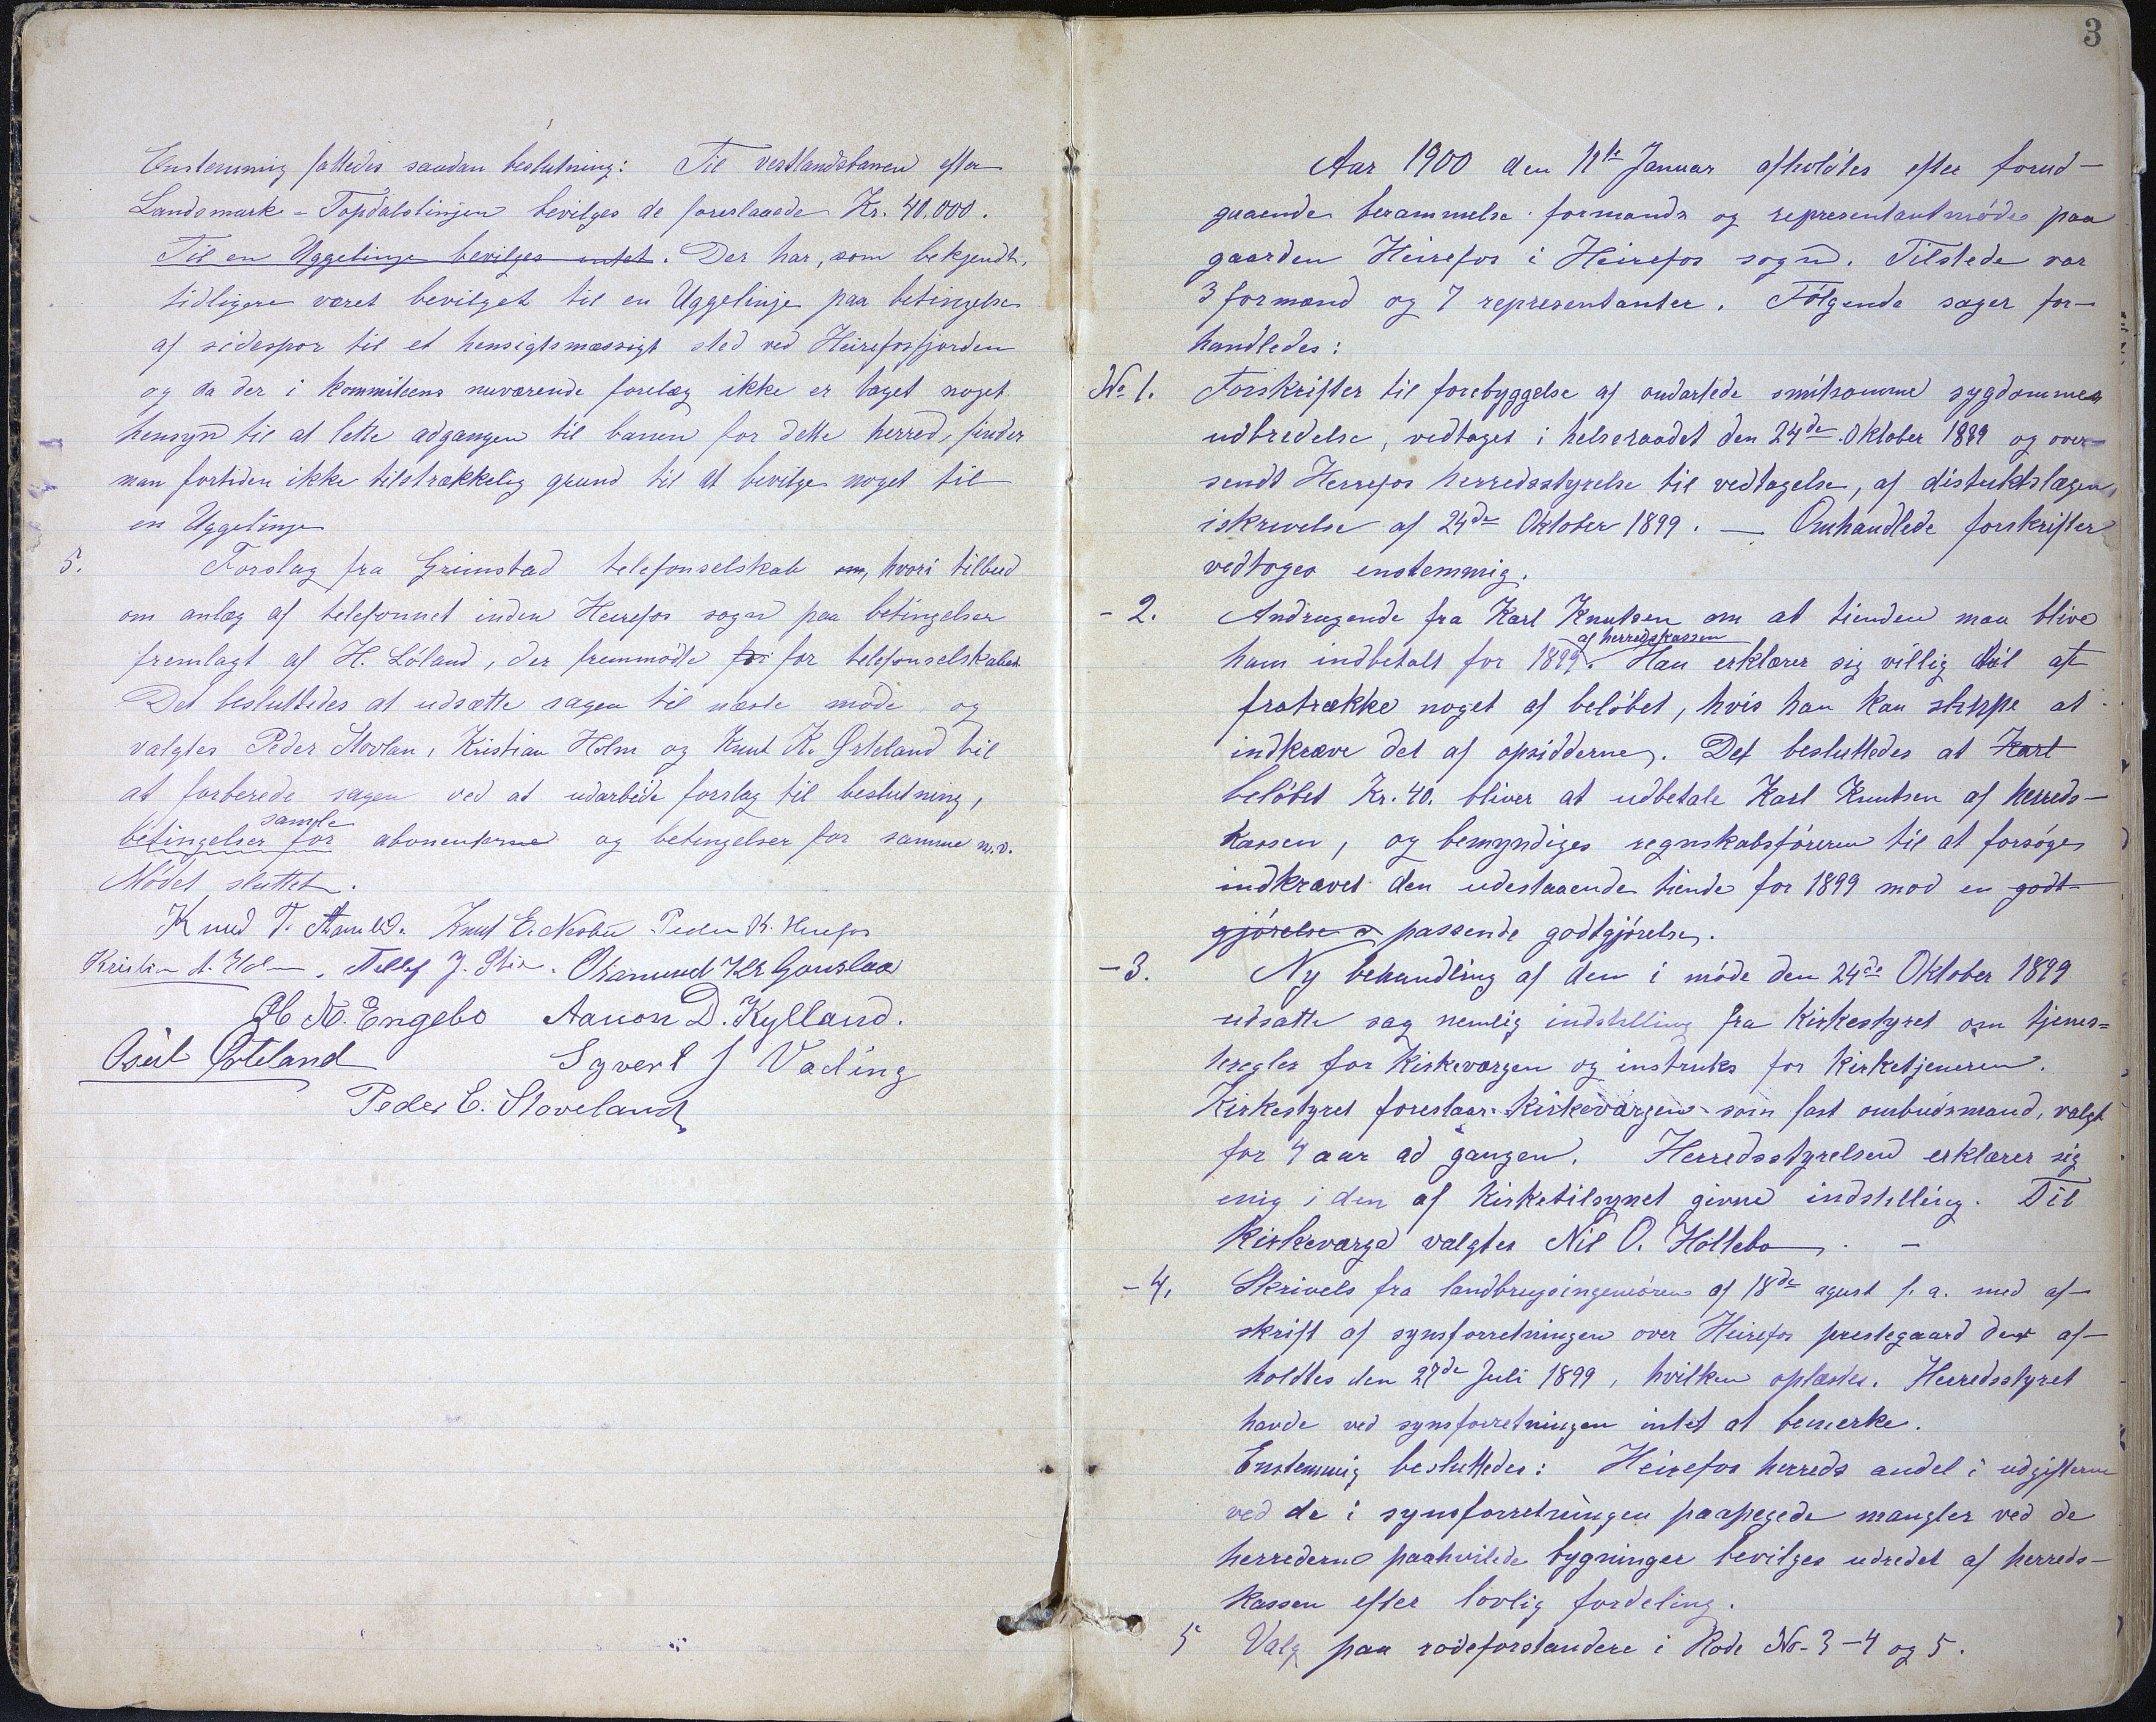 Enstemmig fattedes saadan beslutning: Til vestlandsbanen efter
Landsmark - Topdalslinjen bevilges de foreslaaede Kr. 40.000.
Til en Uggelinje bevilges intet. Der har, som bekjendt,
tidligere været bevilget til en Uggelinje paa betingelse
af sidespor til et hensigtsmæssigt sted ved Heirefosfjorden
og da der i kommiteens nuværende forelæg ikke er taget noget
hensyn til at lette adgangen til banen for dette herred, finder
man fortiden ikke tilstrækkelig grund til at bevilge noget til
en Uggelinje
5. Forslag fra Grimstad telefonselskab om, hvori tilbud
om anlæg af telefonnet inden Heirefos sogn paa betingelser
fremlagt af H. Løland, der fremmødte for for telefonselskabet
Det besluttedes at udsætte sagen til næste møde, og
valgtes Peder Stovlan, Kristian Holm og Knut K.Ørteland til
at forberede sagen ved at udarbeide forslag til beslutning,
samle
betingelser for abonenterne og betingelser for samme m.v.
Mødet sluttet.
Knud T. Knut E. Nesbu Peder K. Heirefos
Kristian A. Holm. Tellef J. Osmund Kr Gauslaa
N. Engebo Aanon D. Kylland.
Osuld Ørteland Syvert J Vading
Peder E. Stoveland
3
Aar 1900 den 11te Januar afholdtes efter forud-
gaaende berammelse formands og representantmøde paa
gaarden Heirefos i Heirefos sogn. Tilstede var
3 formænd og 7 representanter. Følgende sager for-
handledes:
No 1. Forskrifter til forebyggelse af ondartede smitsomme sygdommes
udbredelse, vedtaget i helseraadet den 24de Oktober 1899 og over-
sendt Herrefos herredsstyrelse til vedtagelse, af distriktslægen
iskrivelse af 24de Oktober 1899. — Omhandlede forskrifter
vedtoges enstemmig.
- 2. Andragende fra Karl Knutsen om at tienden maa blive
af herredskassen
ham indbetalt for 1899. Han erklærer sig villig til at
fratrække noget af beløbet, hvis han kan slippe at
indkræve det af opsidderne. Det besluttedes at Karl
beløbet Kr. 40. bliver at udbetale Karl Knutsen af herreds-
kassen, og bemyndiges regnskabsføreren til at forsøge
indkrævet den udestaaende tiende for 1899 mod en godt-
gjørelse passende godtgjørelse.
- 3. Ny behandling af den i møde den 24de Oktober 1899
udsatte sag nemlig indstilling fra kirkestyret om tjenes=
teregler for kirkeværgen og instruks for kirketjeneren.
Kirkestyret foreslaar kirkeværgen som fast ombudsmand, valgt
for 4 aar ad gangen. Herredsstyrelsen erklærer sig
enig i den af kirketilsynet givne indstilling. Til
kirkeværge valgtes Nil O. Høllebo. —
- 4. Skrivels fra landbrugsingeniøren af 18de agust f. a. med af-
skrift af synsforretningen over Heirefos prestegaard der af-
holdtes den 27de Juli 1899, hvilken oplæstes. Herredsstyret
havde ved synsforretningen intet at bemerke.
Enstemmig besluttedes: Heirefos herreds andel i udgifterne
ved de i synsforretningen paapegede mangler ved de
herrederne paahvilede bygninger bevilges udredet af herreds-
kassen efter lovlig fordeling.
5 Valg paa rodeforstandere i Rode No- 3 - 4 og 5.